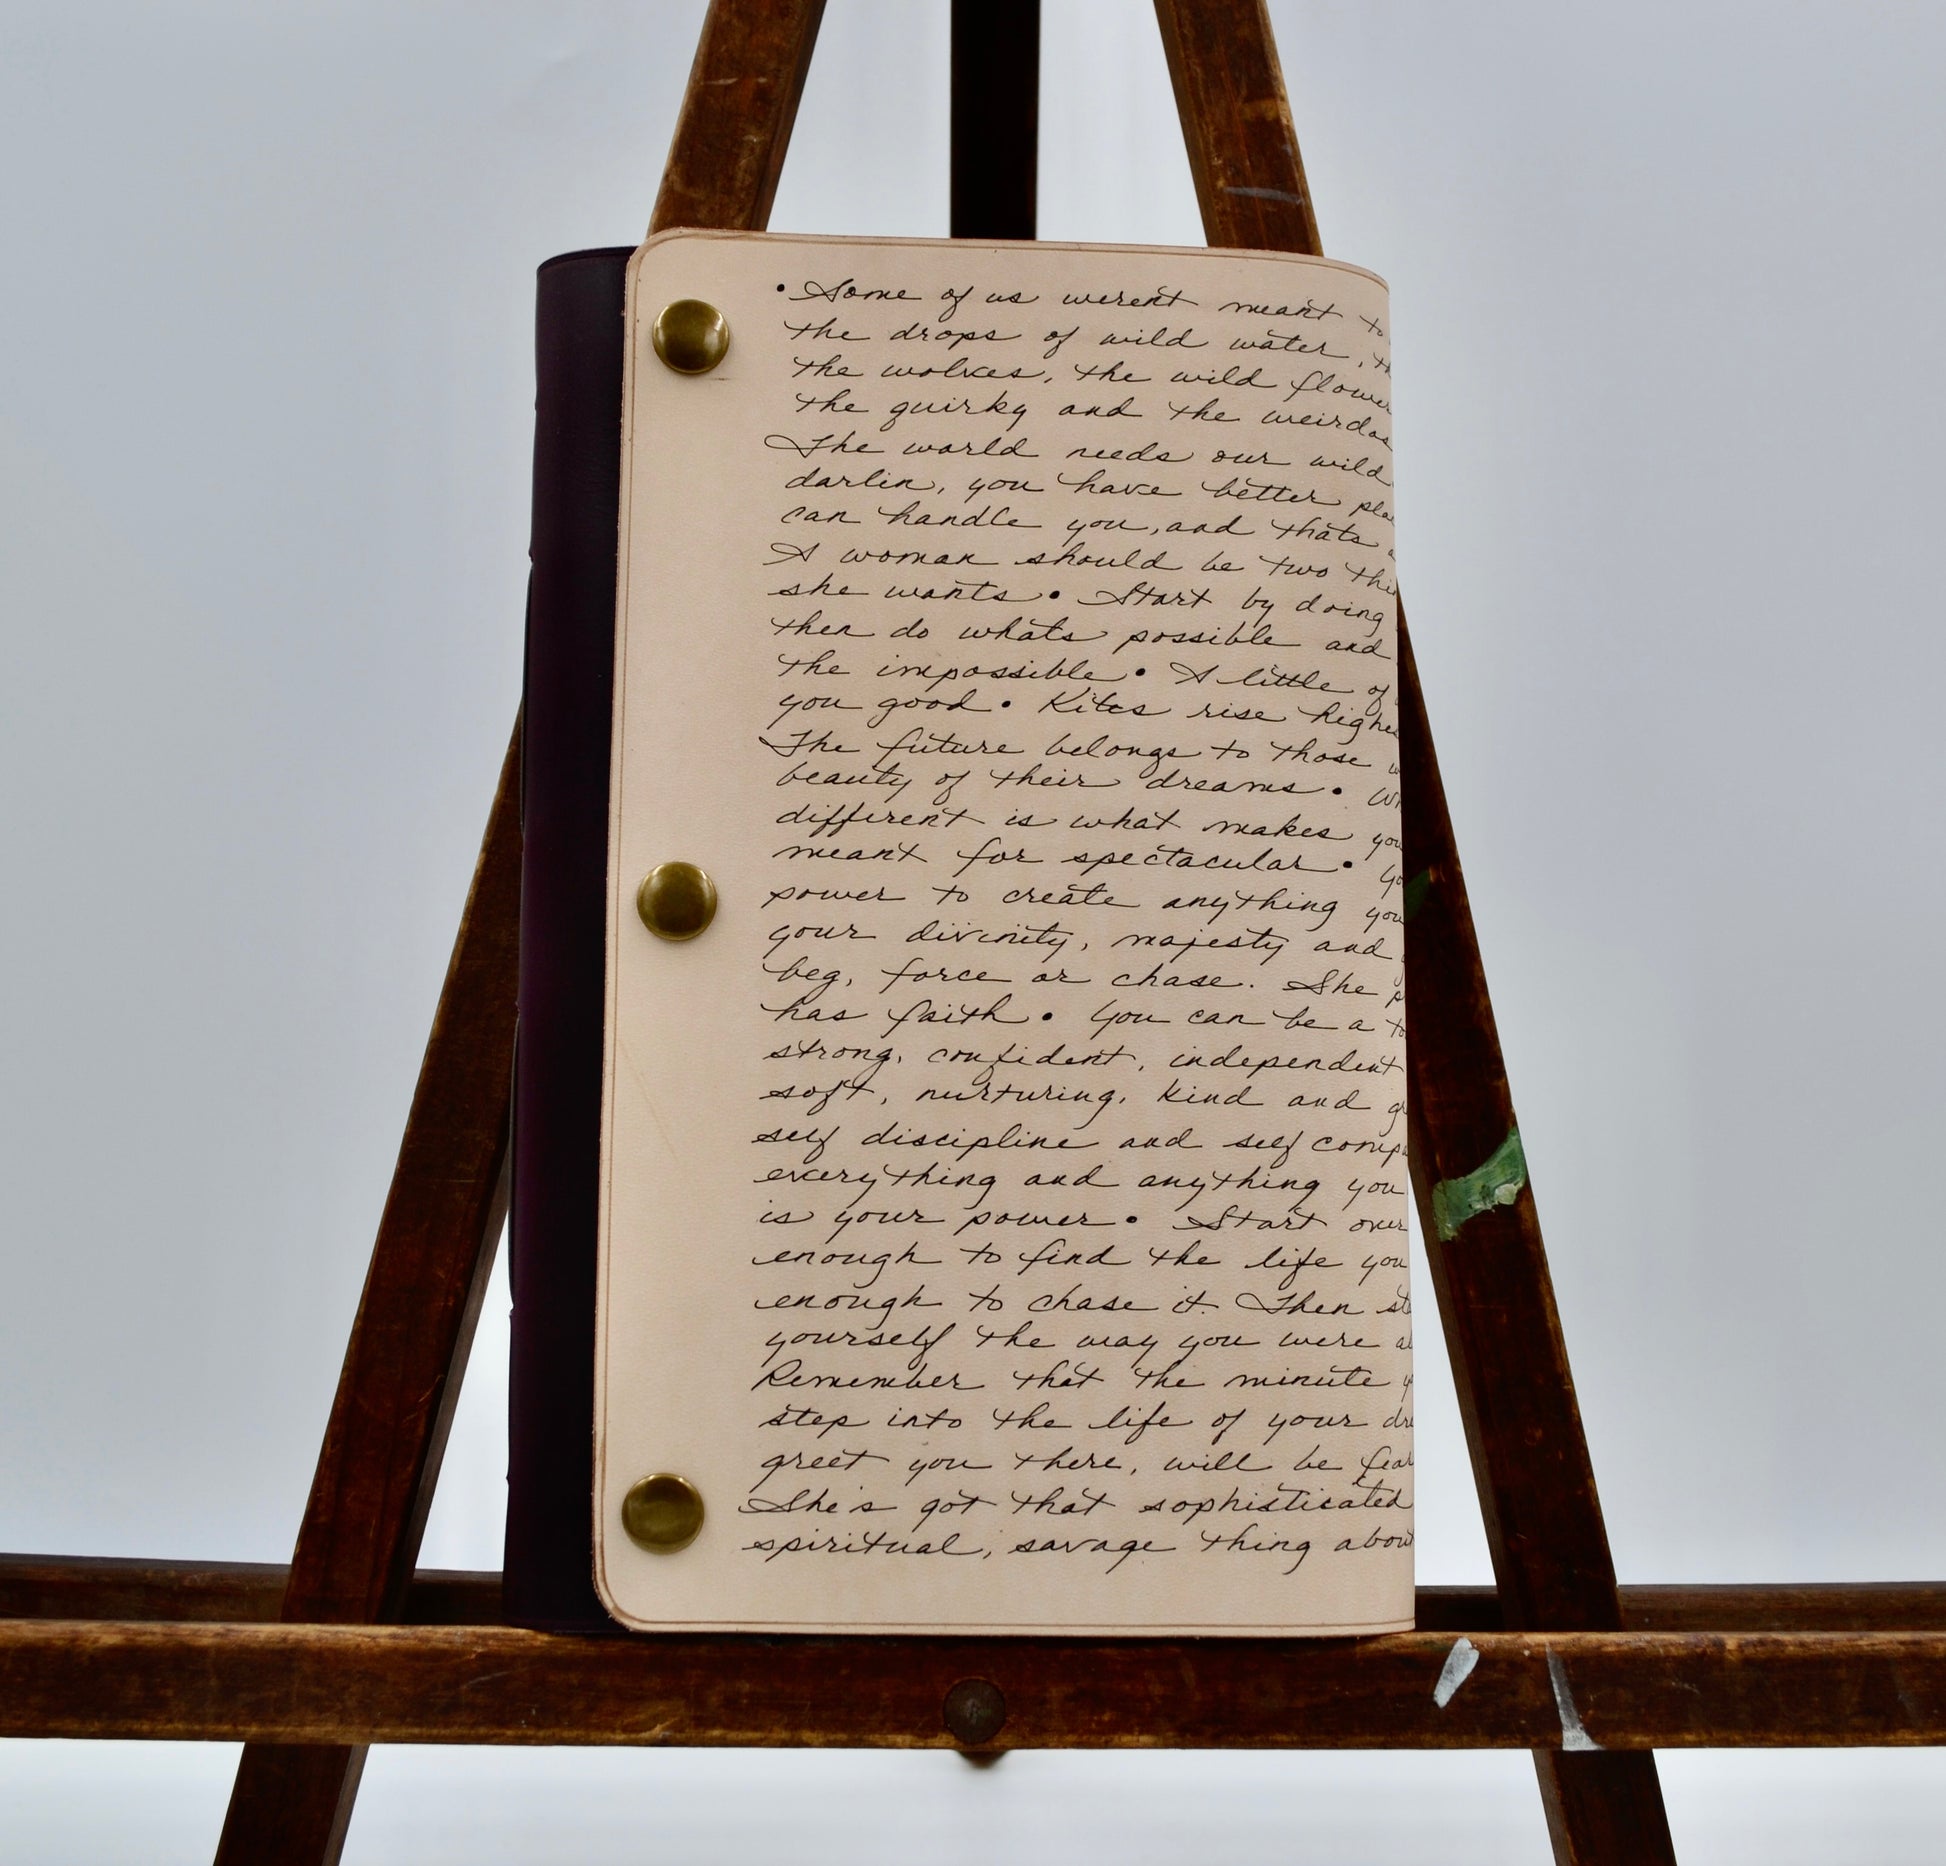 • Some of us weren't meant to
the drops of wild water,
the wolves, the wild flower
the quirky and the weirdos
The world needs our wild
darlin, you have better
can handle you, and thats
A woman should be two
she wants • Start by doing
then do whats possible and
the impossible • A little of
you good • Kites rise
The future belongs to those
beauty of their dreams •
different is what makes you
meant for spectacular •
power to create anything you
your divinity, majesty and
beg, force or chase. She
has faith • You can be a
strong, confident, independent
soft, nurturing, kind and
self discipline and self
everything and anything you
is your power • Start over
enough to find the life you
enough to chase it. Then
yourself the way you were
Remember that the minute
step into the life of your
greet you there, will be
She's got that sophisticated
spiritual, savage thing about